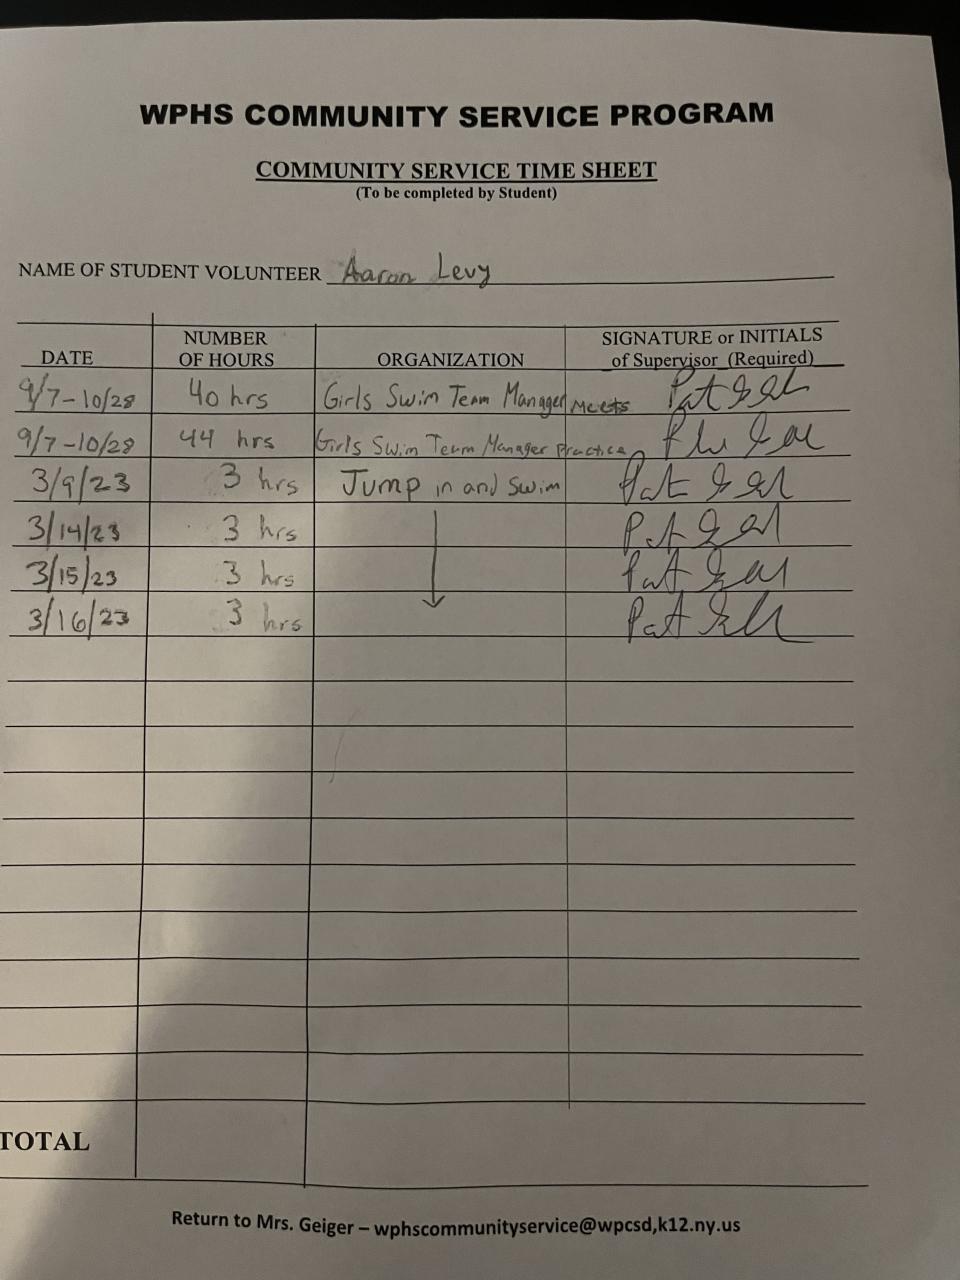 WPHS COMMUNITY SERVICE PROGRAM
COMMUNITY SERVICE TIME SHEET
(To be completed by Student)
NAME OF STUDENT VOLUNTEER Aaron Levy
DATE NUMBER OF HOURS ORGANIZATION SIGNATURE or INITIALS of Supervisor (Required)
9/7-10/28 40 hrs Girls Swim Team Manager Meets Pat
9/7-10/28 44 hrs Girls Swim Team Manager Practice
3/9/23 3 hrs Jump in and Swim Pat
3/14/23 3 hrs Pat
3/15/23 3 hrs Pat
3/16/23 3 hrs Pat
TOTAL
Return to Mrs. Geiger – wphscommunityservice@wpcsd,k12.ny.us